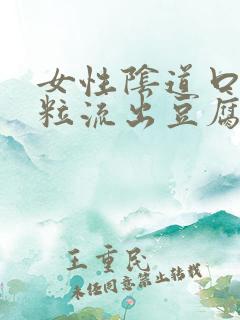 女性陰道口
粒流出豆腐
王重民
未经同意禁止转载